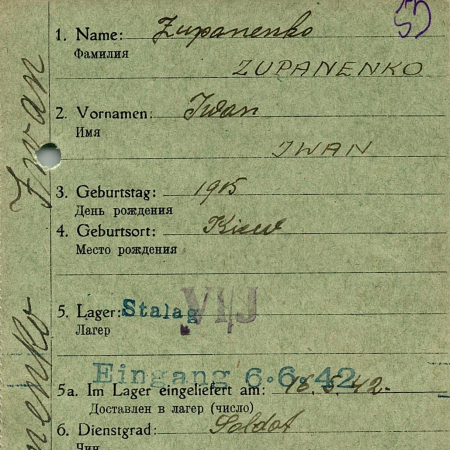 55
1. Name: Zupanenko
Фамилия
ZUPANENKO
2. Vornamen: Iwan
Имя
IWAN
3. Geburtstag: 1905
День рождения
4. Geburtsort: Kiew
Место рождения
5. Lager: Stalag VI/J
Лагерь
Eingang 6.6.42
5a. Im Lager eingeliefert am: 18.5.42.
Доставлен в лагерь (число)
6. Dienstgrad: Soldat
Чин
Iwan
nenko